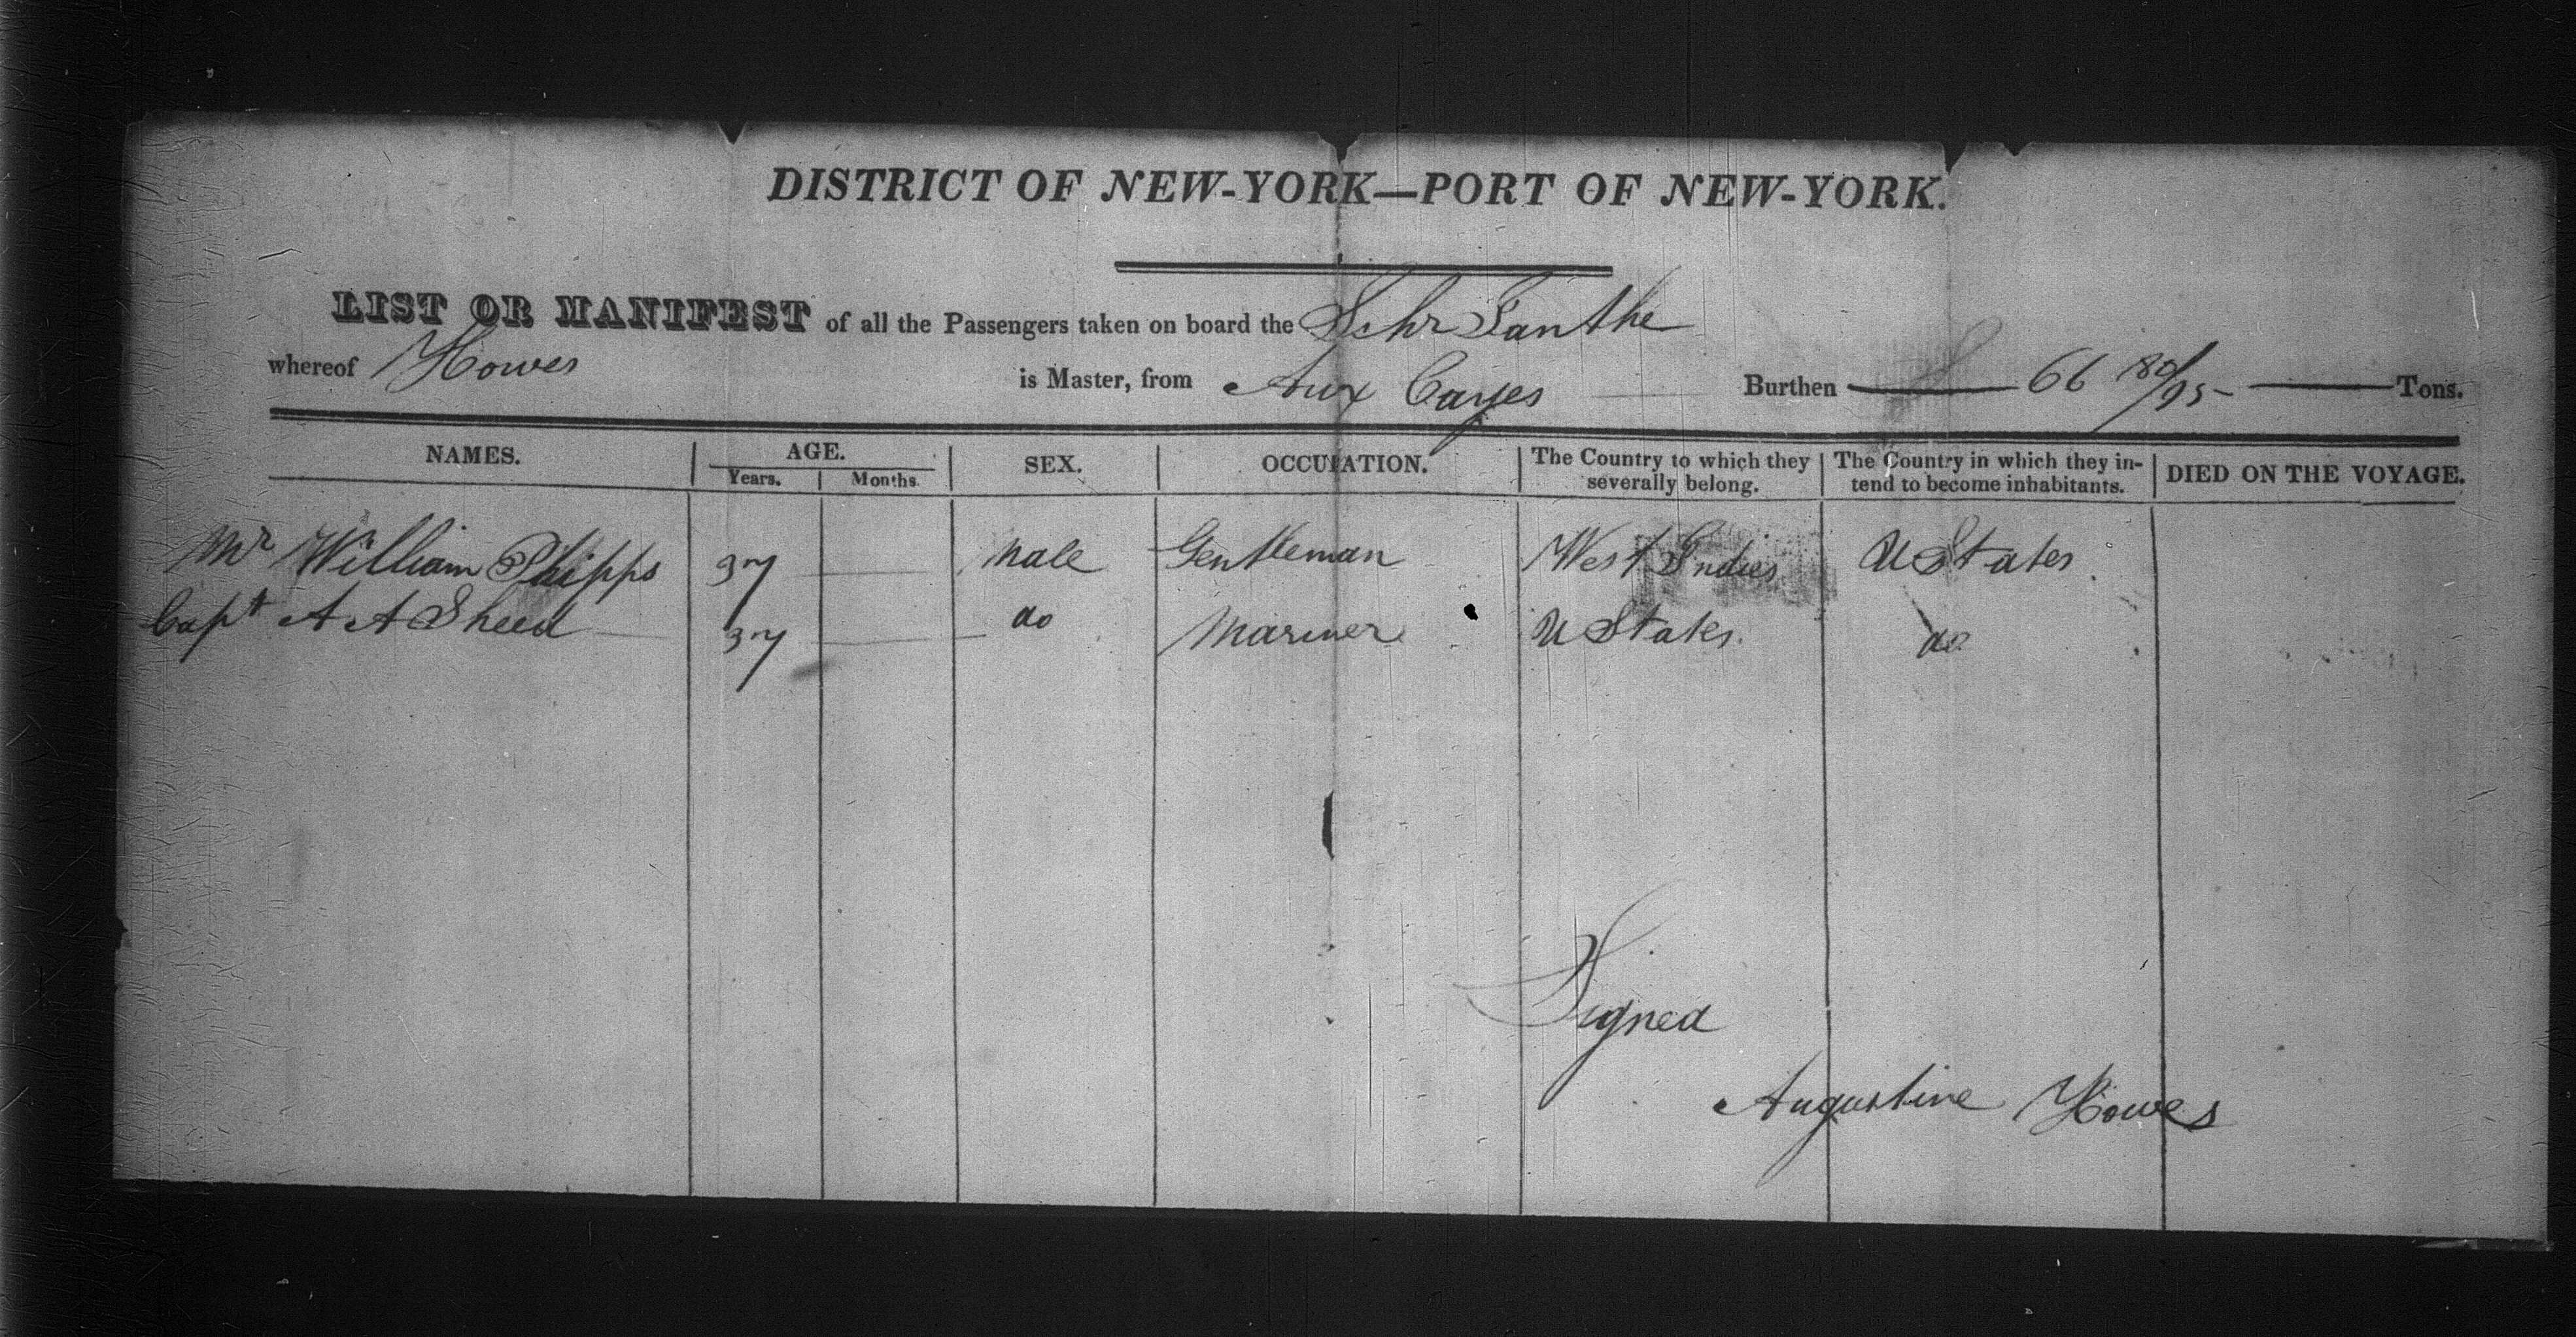 DISTRICT OF NEW-YORK—PORT OF NEW-YORK.
LIST OR MANIFEST of all the Passengers taken on board the Schr Ianthe
whereof Howes is Master, from Aux Cayes Burthen 66 80/95 Tons.
NAMES. AGE. SEX. OCCUPATION. The Country to which they severally belong. The Country in which they intend to become inhabitants. DIED ON THE VOYAGE.
Years. Months.
Mr William Phipps 37 Male Gentleman West Indies U States
Capt A A Sheed 37 do Mariner U States do
Signed
Augustine Howes